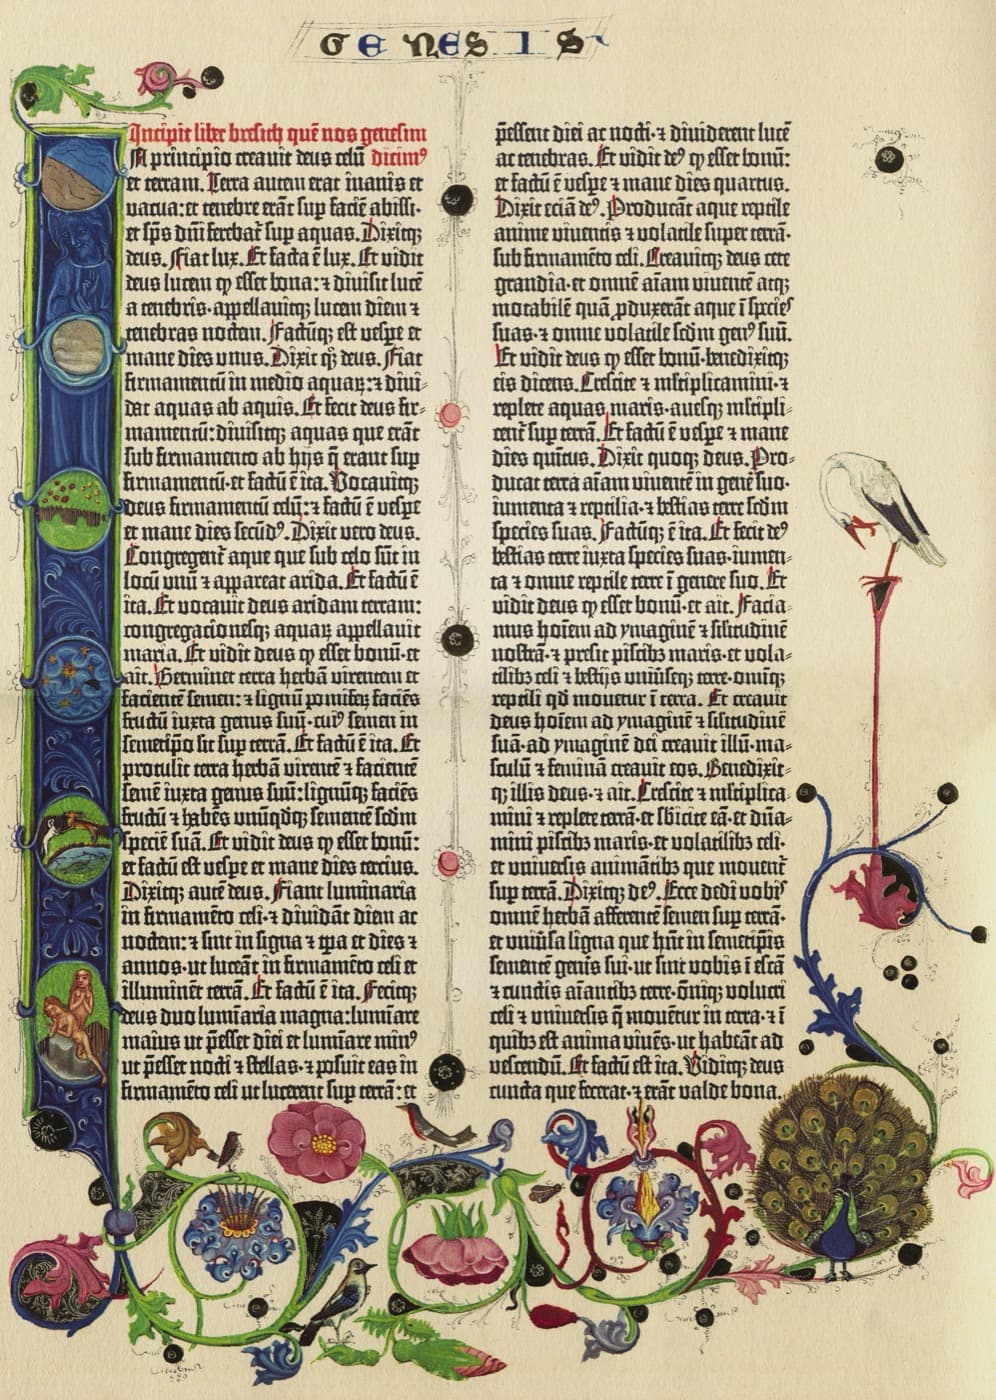 GENESIS
Incipit liber bresith quē nos genesim
N principio creavit deus celū dicimꝰ
et terram. Terra autem erat inanis et
vacua: et tenebre erāt sup faciē abissi·
et sp̄s dn̄i ferebat̄ sup aquas. Dixitqꝫ
deus. Fiat lux. Et facta ē lux. Et vidit
deus lucem ꝙ esset bona: ⁊ divisit lucē
a tenebris·appellavitqꝫ lucem diem ⁊
tenebras noctem. Factūqꝫ est vespe et
mane dies unus. Dixit qꝫ deus. Fiat
firmamentū in medio aquaꝝ: ⁊ divi-
dat aquas ab aquis. Et fecit deus fir-
mamentū: divisitqꝫ aquas que erāt
sub firmamento ab hijs q̄ erant sup
firmamentū·et factū ē ita. Vocavitqꝫ
deus firmamentū celū: ⁊ factū ē vespe
et mane dies secūdꝰ. Dixit vero deus.
Congregent̄ aque que sub celo sūt in
locū unū ⁊ appareat arida. Et factū ē
ita. Et vocavit deus aridam terram:
congregacionesqꝫ aquaꝝ appellavit
maria. Et vidit deus ꝙ esset bonū·et
ait. Germinet terra herbā virentem et
facientē semen: ⁊ lignū pomifeꝝ faciēs
fructū iuxta genus suū·cuiꝰ semen in
semetip̄o sit sup terrā. Et factū ē ita. Et
protulit terra herbā virentē ⁊ facientē
semē iuxta genus suū: lignūqꝫ faciēs
fructū ⁊ habēs unūqdqꝫ sementē scdm
speciē suā. Et vidit deus ꝙ esset bonū:
et factū est vespe et mane dies tercius.
Dixitqꝫ autē deus. Fiant luminaria
in firmamēto celi·⁊ dividāt diem ac
noctem: ⁊ sint in signa ⁊ tp̄a et dies ⁊
annos·ut luceāt in firmamēto celi et
illuminēt terrā. Et factū ē ita. Fecitqꝫ
deus duo lumīaria magna: lumīare
maius ut p̄esset diei et lumīare minꝰ
ut p̄esset nocti ⁊ stellas·⁊ posuit eas in
firmamēto celi ut lucerent sup terrā: et
p̄essent diei ac nocti·⁊ dividerent lucē
ac tenebras. Et vidit deꝰ ꝙ esset bonū:
et factū ē vespe ⁊ mane dies quartus.
Dixit eciā deꝰ. Producāt aque reptile
anime viventis ⁊ volatile super terrā·
sub firmamēto celi. Creavitqꝫ deus cete
grandia·et omnē aīam viventē atqꝫ
motabilē quā ꝓduxerāt aque ī species
suas·⁊ omne volatile scdm genꝰ suū.
Et vidit deus ꝙ esset bonū·benedixitqꝫ
eis dicens. Crescite ⁊ mltiplicamini·⁊
replete aquas maris·avesqꝫ mltipli-
cent̄ sup terrā. Et factū ē vespe ⁊ mane
dies quītus. Dixit quoqꝫ deus. Pro-
ducat terra aīam viventē in genē suo·
iumenta ⁊ reptilia·⁊ bestias terre scdm
species suas. Factūqꝫ ē ita. Et fecit deꝰ
bestias terre iuxta species suas·iumen-
ta ⁊ omne reptile terre ī genere suo. Et
vidit deus ꝙ esset bonū·et ait. Facia-
mus hoīem ad ymaginē ⁊ silitudinē
nostrā·⁊ presit piscibꝫ maris·et vola-
tilibꝫ celi ⁊ bestijs univseqꝫ terre·omīqꝫ
reptili qd movetur ī terra. Et creavit
deus hoīem ad ymaginē ⁊ silitudinē
suā·ad ymaginē dei creavit illū·ma-
sculū ⁊ feminā creavit eos. Benedixit-
qꝫ illis deus·⁊ ait. Crescite ⁊ mltiplica-
mini ⁊ replete terrā·et sbicite eā·et dn̄a-
mini piscibꝫ maris·et volatilibꝫ celi·
et universis animātibꝫ que movent̄
sup terrā. Dixitqꝫ deꝰ. Ecce dedi vobis
omnē herbā afferentē semen sup terrā·
et univsa ligna que hn̄t in semetip̄is
sementē gen̄is sui·ut sint vobis ī escā
⁊ cunctis aīantibꝫ terre·ōniqꝫ volucri
celi ⁊ universis q̄ movētur in terra·⁊ ī
quibꝫ est anima vivēs·ut habeāt ad
vescendū. Et factū est ita. Viditqꝫ deus
cuncta que fecerat·⁊ erāt valde bona.